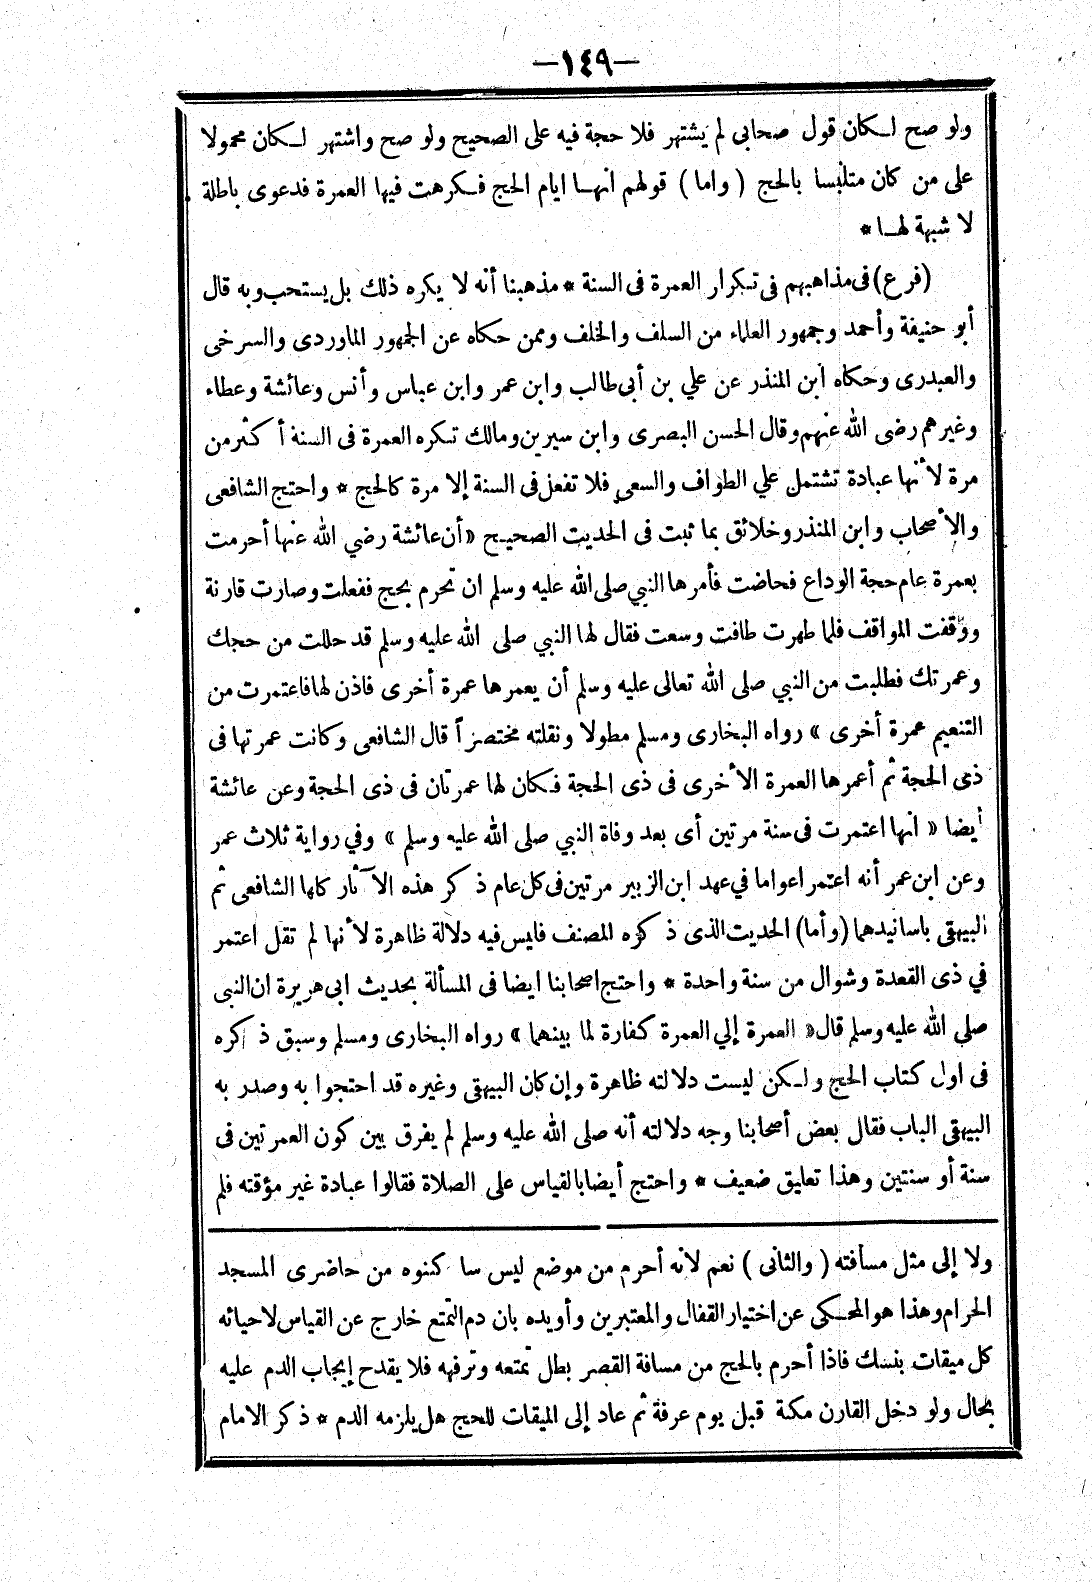 —١٤٩—
ولو صح لـكان قول صحابى لم يشتهر فلا حجة فيه على الصحيح ولو صح واشتهر لـكان محمولا
على من كان متلبسا بالحج ( واما ) قولهم انهـا ايام الحج فـكرهت فيها العمرة فدعوى باطلة
لا شبهة لهـا *
(فرع) فى مذاهبهم فى تكرار العمرة فى السنة * مذهبنا أنه لا يكره ذلك بل يستحب وبه قال
أبو حنيفة وأحمد وجمهور العلماء من السلف والخلف وممن حكاه عن الجمهور الماوردى والسرخى
والعبدرى وحكاه ابن المنذر عن علي بن أبى طالب وابن عمر وابن عباس وأنس وعائشة وعطاء
وغيرهم رضى الله عنهم وقال الحسن البصرى وابن سيرين ومالك تكره العمرة فى السنة أكثر من
مرة لأنها عبادة تشتمل علي الطواف والسعى فلا تفعل فى السنة إلا مرة كالحج * واحتج الشافعى
والأصحاب وابن المنذر وخلائق بما ثبت فى الحديث الصحيح «أن عائشة رضي الله عنها أحرمت
بعمرة عام حجة الوداع فحاضت فأمرها النبي صلى الله عليه وسلم ان تحرم بحج ففعلت وصارت قارنة
ووقفت المواقف فلما طهرت طافت وسعت فقال لها النبي صلى الله عليه وسلم قد حللت من حجك
وعمرتك فطلبت من النبي صلى الله تعالى عليه وسلم أن يعمرها عمرة أخرى فاذن لها فاعتمرت من
التنعيم عمرة أخرى » رواه البخارى ومسلم مطولا ونقلته مختصراً قال الشافعى وكانت عمرتها فى
ذى الحجة ثم أعمرها العمرة الأخرى فى ذى الحجة فكان لها عمرتان فى ذى الحجة وعن عائشة
أيضا « انها اعتمرت فى سنة مرتين أى بعد وفاة النبي صلى الله عليه وسلم » وفي رواية ثلاث عمر
وعن ابن عمر أنه اعتمر اعواما في عهد ابن الزبير مرتين فى كل عام ذكر هذه الآثار كلها الشافعى ثم
البيهقى باسانيدهما (وأما) الحديث الذى ذكره المصنف فليس فيه دلالة ظاهرة لأنها لم تقل اعتمر
في ذى القعدة وشوال من سنة واحدة * واحتج اصحابنا ايضا فى المسألة بحديث ابى هريرة ان النبى
صلي الله عليه وسلم قال « العمرة إلي العمرة كفارة لما بينهما » رواه البخارى ومسلم وسبق ذكره
فى اول كتاب الحج ولـكن ليست دلالته ظاهرة وإن كان البيهقى وغيره قد احتجوا به وصدر به
البيهقى الباب فقال بعض أصحابنا وجه دلالته أنه صلى الله عليه وسلم لم يفرق بين كون العمرتين فى
سنة أو سنتين وهذا تعليق ضعيف * واحتج أيضا بالقياس على الصلاة فقالوا عبادة غير مؤقته فلم
ولا إلى مثل مسافته ( والثانى ) نعم لانه أحرم من موضع ليس ساكنوه من حاضرى المسجد
الحرام وهذا هو المحكى عن اختيار القفال والمعتبرين وأويده بان دم التمتع خارج عن القياس لاحيائه
كل ميقات بنسك فاذا أحرم بالحج من مسافة القصر بطل تمتعه وترفهه فلا يقدح إيجاب الدم عليه
بحال ولو دخل القارن مكة قبل يوم عرفة ثم عاد إلى الميقات للحج هل يلزمه الدم * ذكر الامام